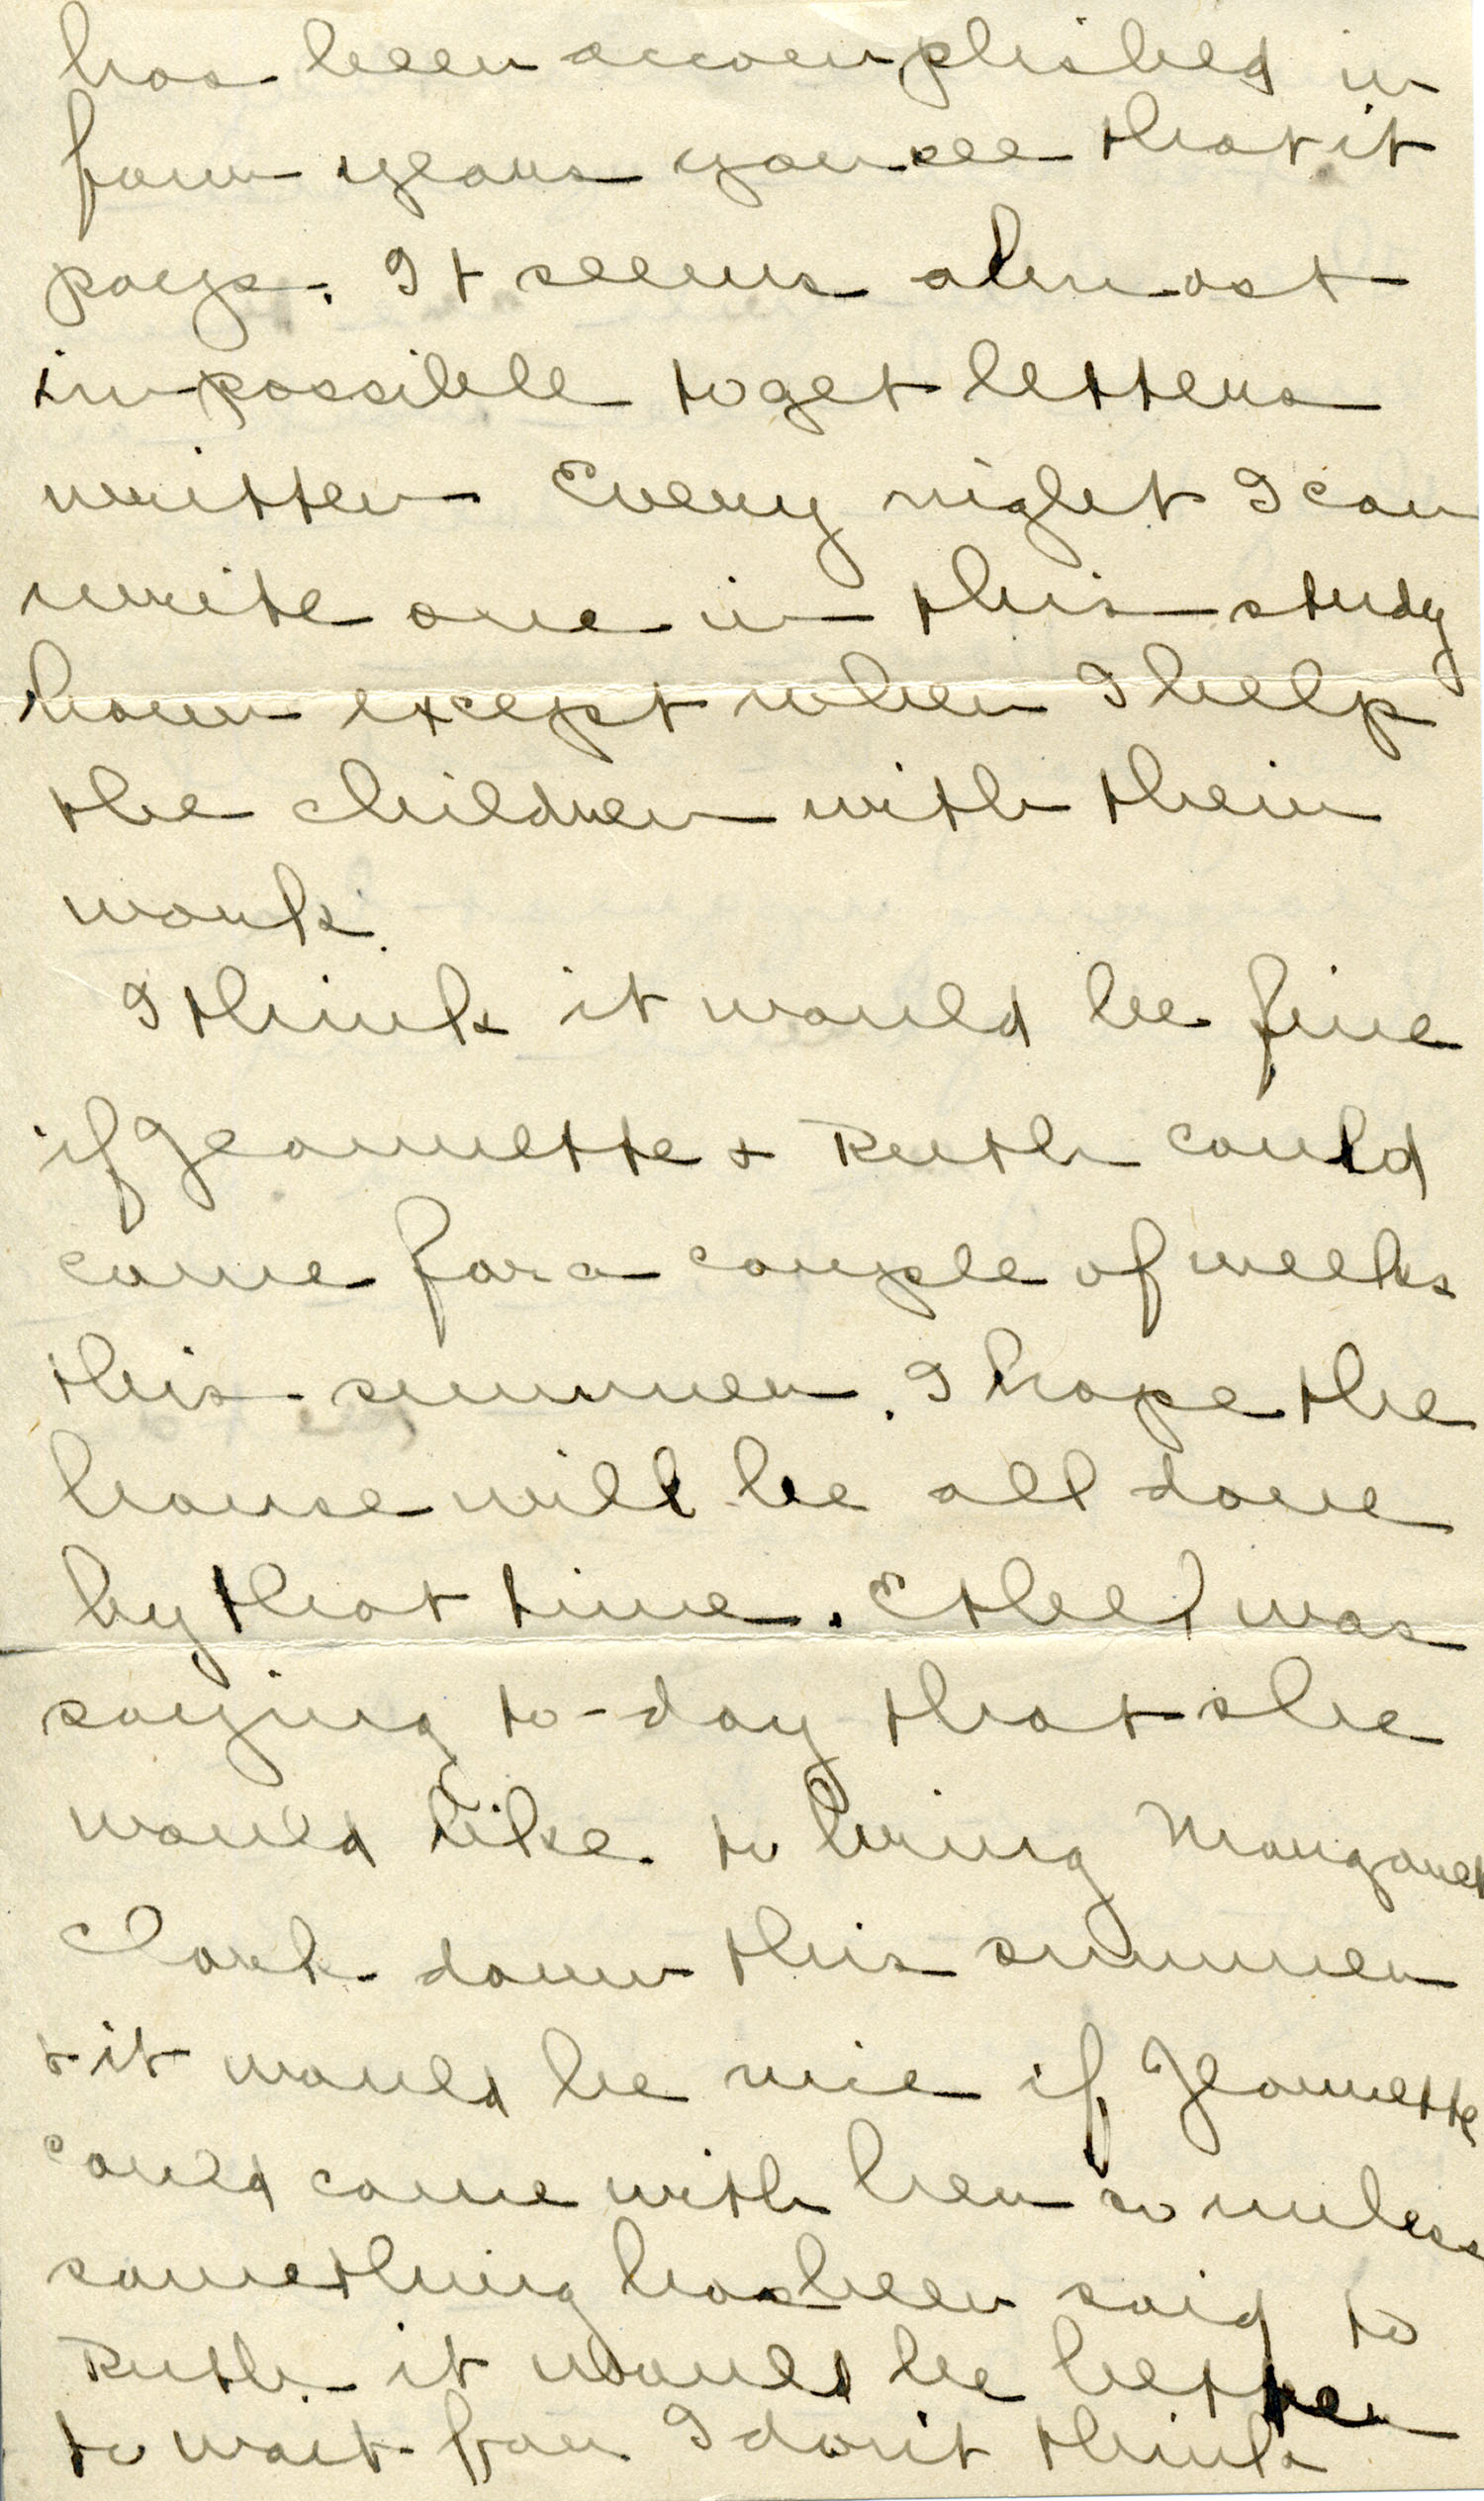 has been accomplished in
four years you see that it
pays. It seems almost
impossible to get letters
written Every night I can
write one in this study
hour except when I help
the children with their
work.
I think it would be fine
if Jeannette & Ruth could
come for a couple of weeks
this summer. I hope the
house will be all done
by that time. Ethel was
saying to-day that she
would like to bring Margaret
Clark down this summer
& it would be nice if Jeannette
could come with her so unless
something has been said to
Ruth it would be better
to wait for I don't think